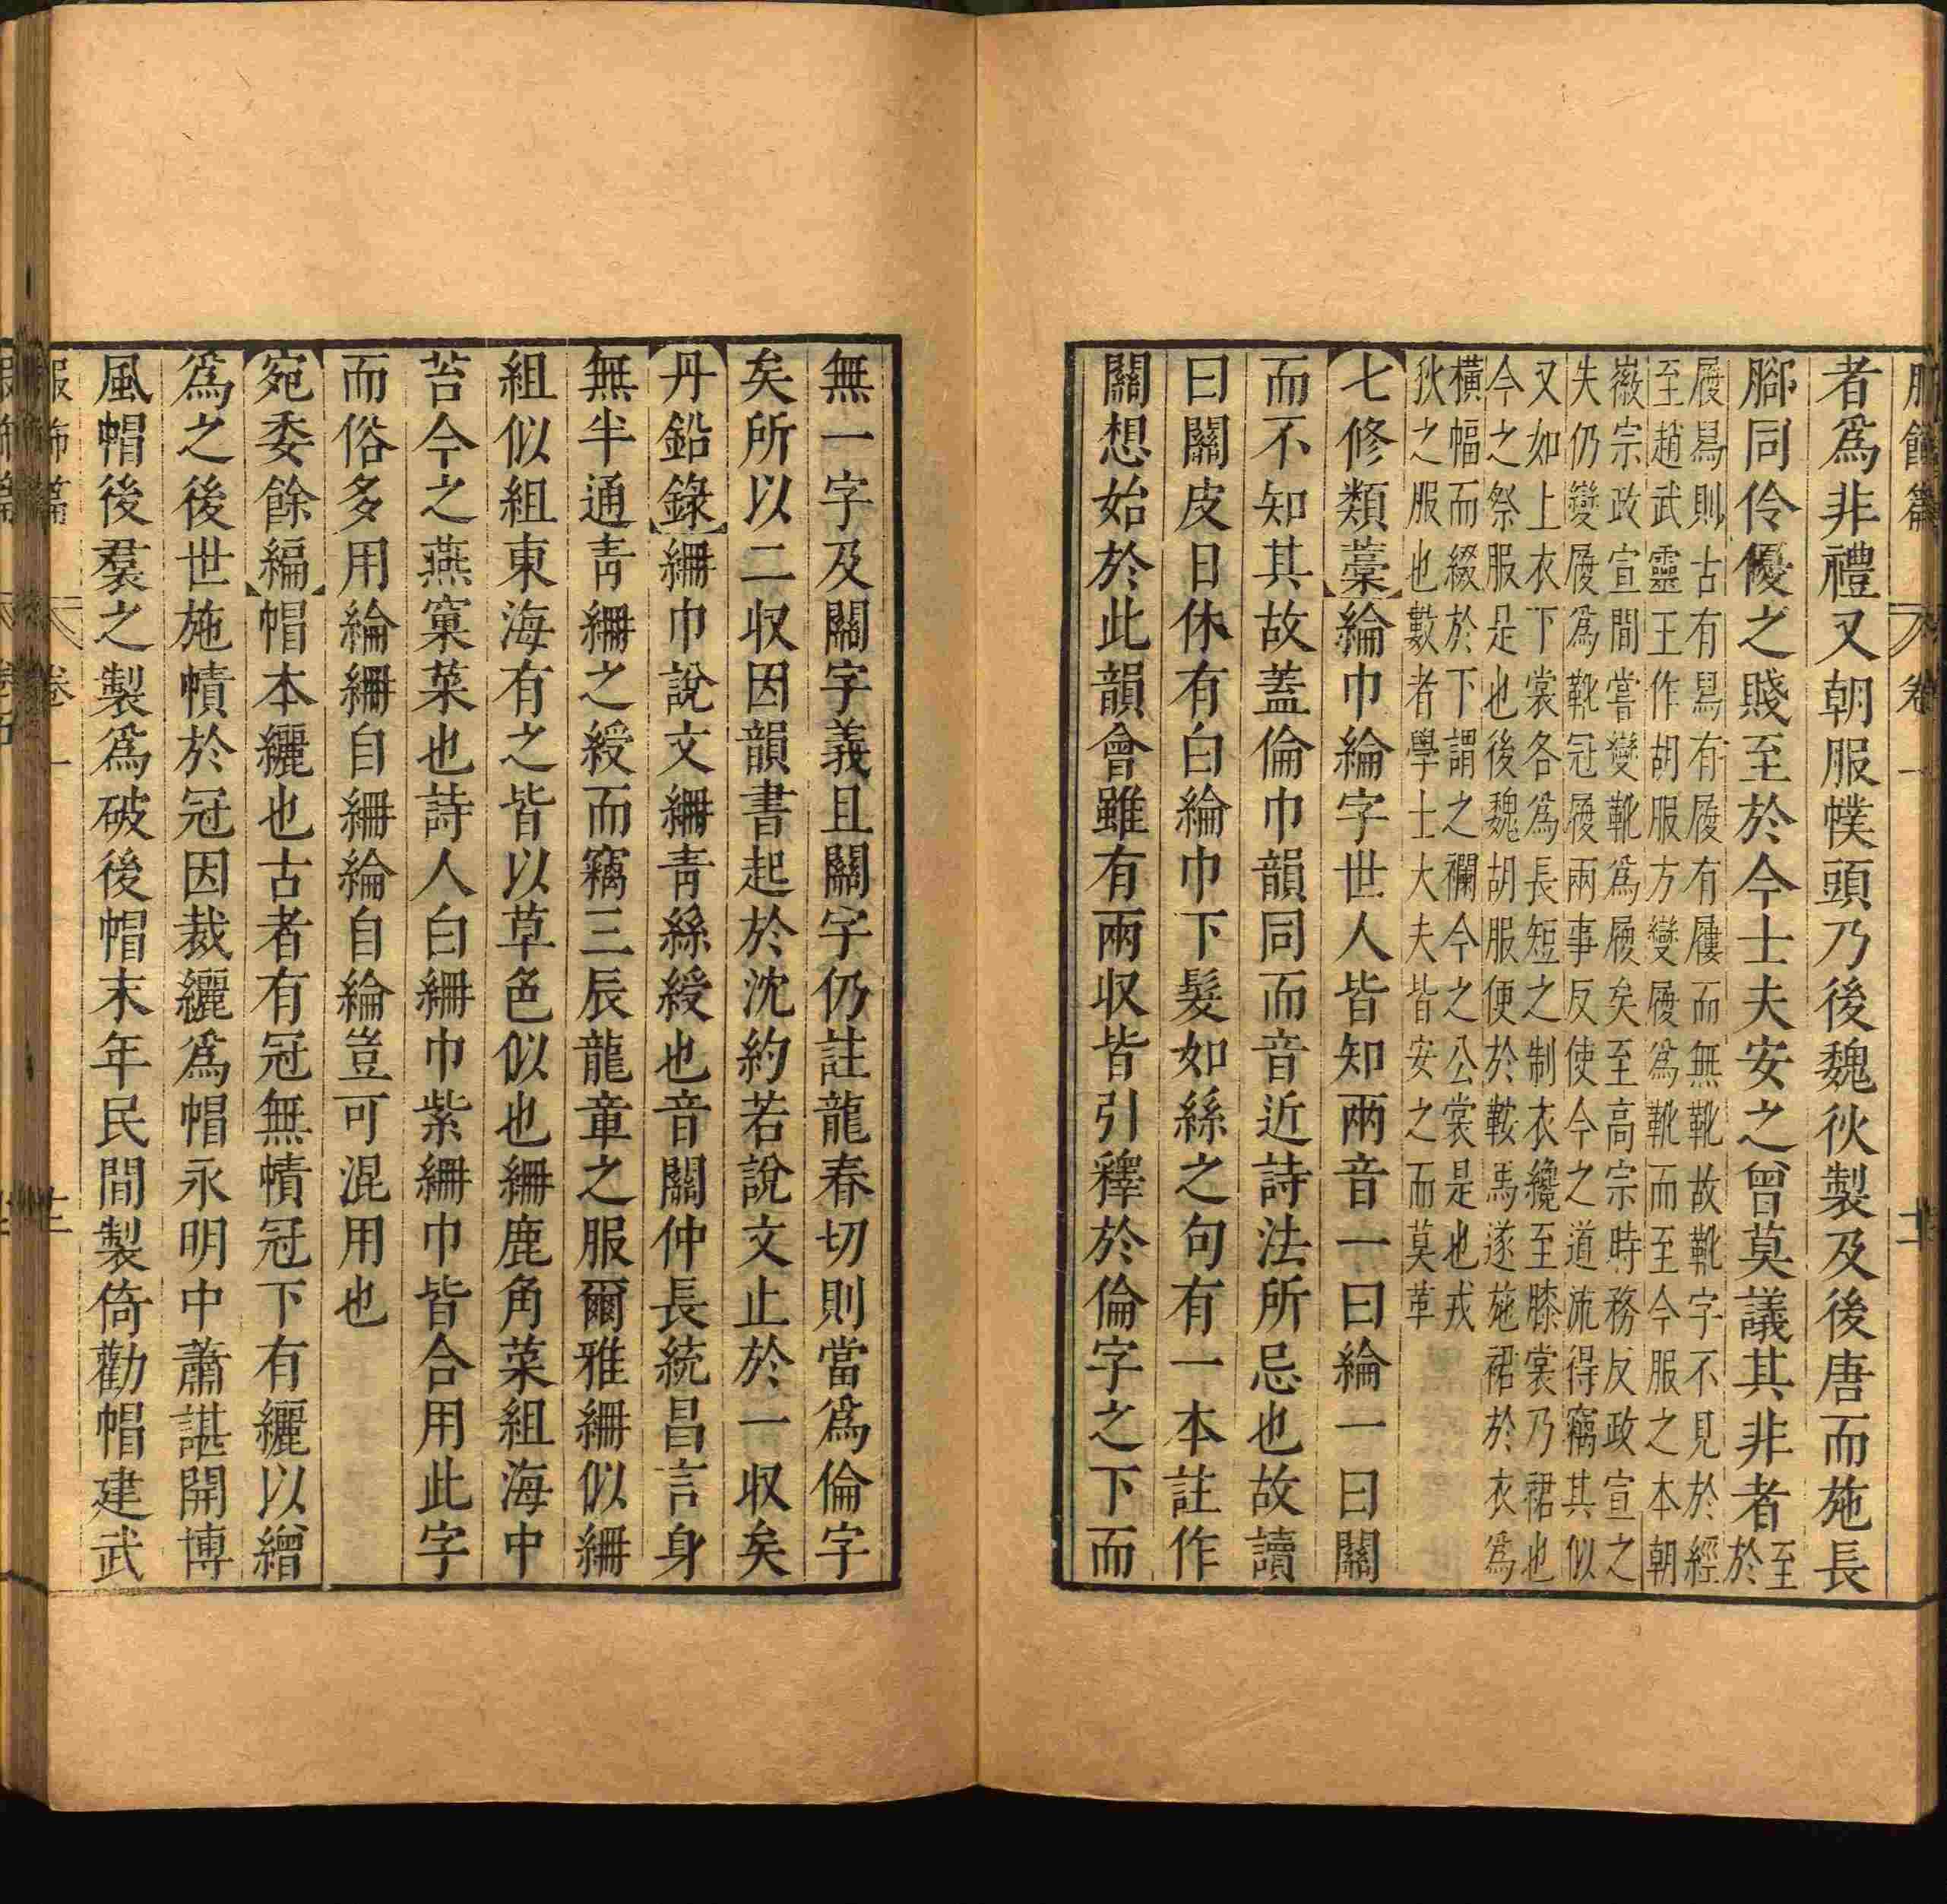 服飾篇 卷一 十二
者爲非禮又朝服幞頭乃後魏狄製及後唐而施長
腳同伶優之賤至於今士夫安之曾莫議其非者至於
履舄則古有舄有履有屨而無靴故靴字不見於經
至趙武靈王作胡服方變履爲靴而至今服之本朝
徽宗政宣間嘗變靴爲履矣至高宗時務反政宣之
失仍變履爲靴冠履兩事反使今之道流得竊其似
又如上衣下裳各爲長短之制衣纔至膝裳乃裙也
今之祭服是也後魏胡服便於鞍馬遂施裙於衣爲
橫幅而綴於下謂之襴今之公裳是也戎
狄之服也數者學士大夫皆安之而莫革
七修類藁綸巾綸字世人皆知兩音一曰綸一曰關
而不知其故蓋倫巾韻同而音近詩法所忌也故讀
曰關皮日休有白綸巾下髮如絲之句有一本註作
關想始於此韻會雖有兩收皆引釋於倫字之下而
無一字及關字義且關字仍註龍春切則當爲倫字
矣所以二收因韻書起於沈約若說文止於一收矣
丹鉛錄䌫巾說文䌫青絲綬也音關仲長統昌言身
無半通靑䌫之綬而竊三辰龍章之服爾雅䌫似䌫
組似組東海有之皆以草色似也䌫鹿角菜組海中
苔今之燕窠菜也詩人白䌫巾紫䌫巾皆合用此字
而俗多用綸䌫自䌫綸自綸豈可混用也
宛委餘編帽本纚也古者有冠無幘冠下有纚以繒
爲之後世施幘於冠因裁纚爲帽永明中蕭諶開博
風帽後羣之製爲破後帽末年民間製倚勸帽建武
服飾篇 卷一 十二